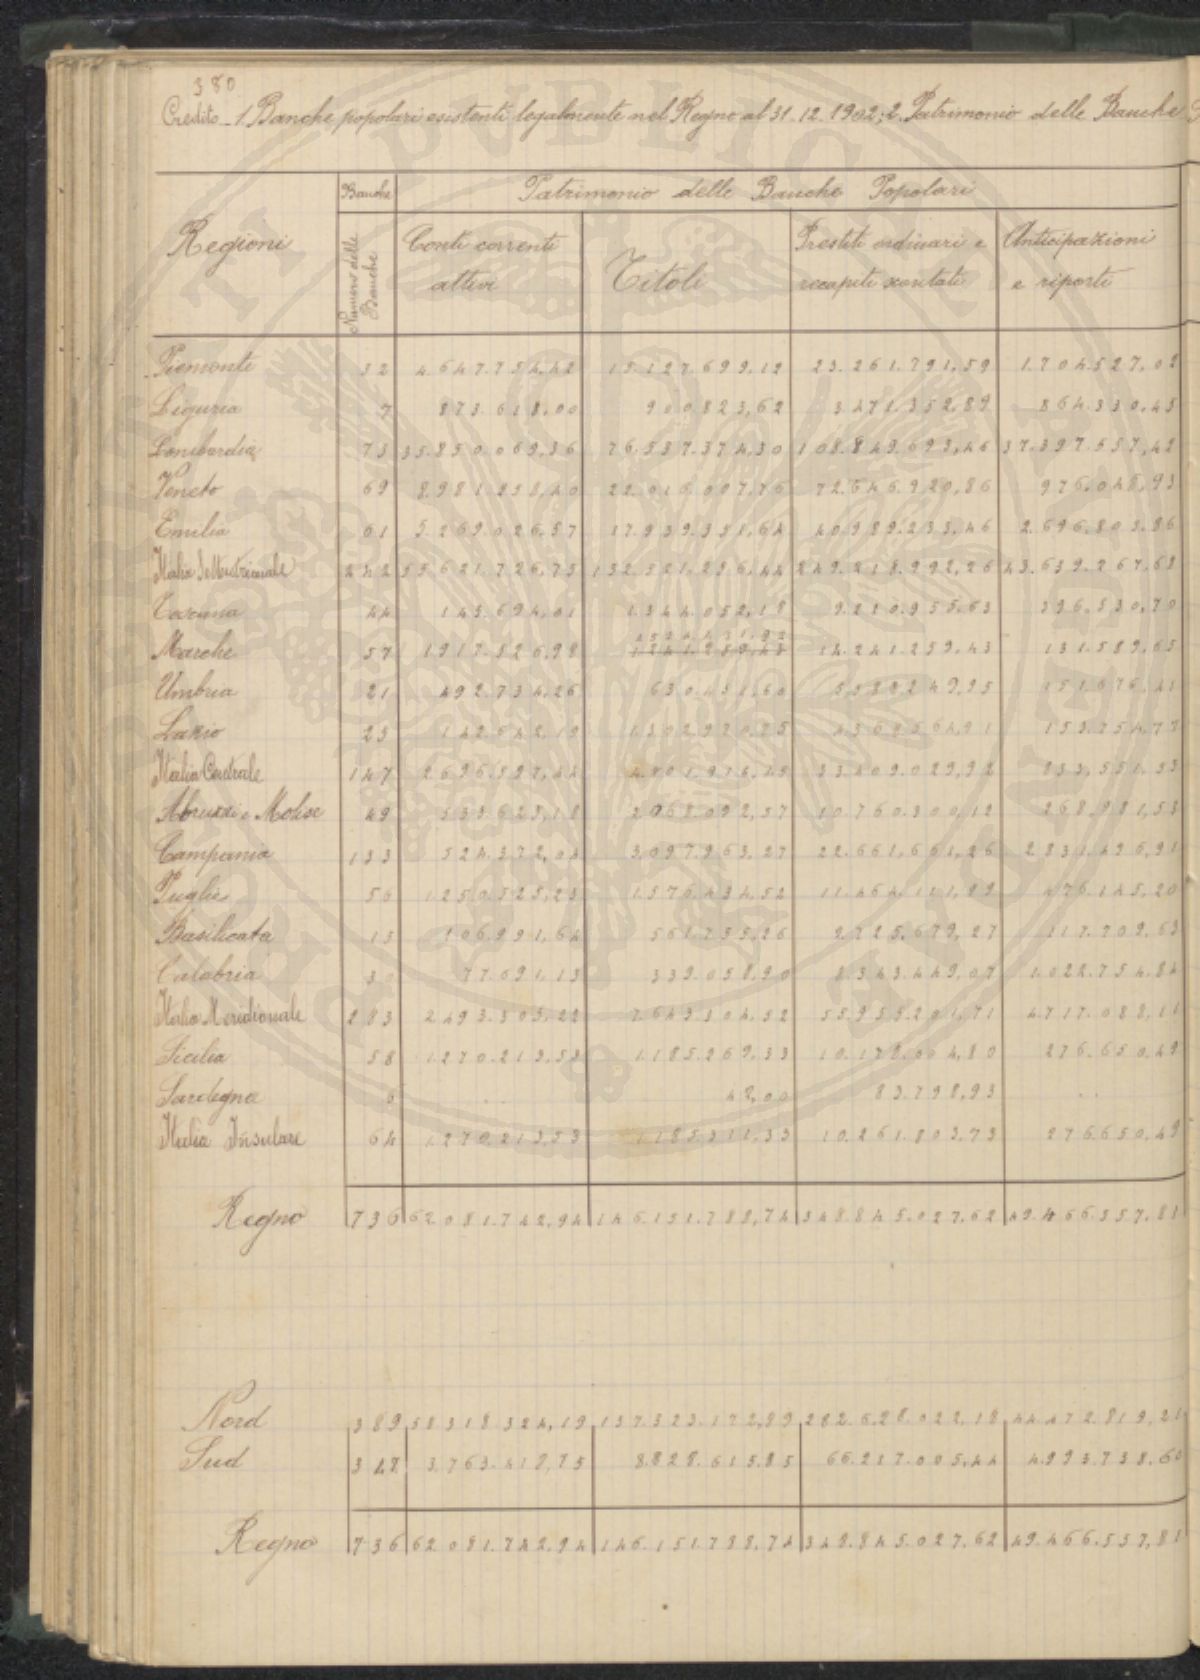 380
Credito - 1 Banche popolari esistenti legalmente nel Regno al 31.12.1902; 2. Patrimonio delle Banche
Regioni
Banche
Patrimonio delle Banche Popolari
Numero delle Banche
Conti correnti attivi
Titoli
Prestiti ordinari e recapiti scontati
Anticipazioni e riporti
Piemonte 32 4.647.754,42 15.127.699,12 23.261.791,59 1.704.527,02
Liguria 7 873.618,00 900.823,62 3.471.352,89 864.330,45
Lombardia 73 35.850.069,36 76.537.374,30 108.849.693,46 37.397.557,42
Veneto 69 8.981.258,40 22.016.007,76 72.646.920,86 976.048,93
Emilia 61 5.269.026,57 17.939.351,64 40.989.233,46 2.696.803,86
Italia Settentrionale 242 55.621.726,75 132.521.256,44 249.218.992,26 43.639.267,68
Toscana 44 143.694,01 1.344.052,18 9.210.955,63 396.530,70
Marche 57 1917.526,98 14.241.259,43 131.589,65
Umbria 21 492.734,26 151.676,41
Lazio 23 142.642,19 1302.920,25 153.754,77
Italia Centrale 147 2.696.597,44 33.409.029,92 833,551,53
Abruzzi e Molise 49 533.623,18 2068.092,57 10.760.300,12 268.981,53
Campania 133 524.372,04 3.097.963,27 22.661.661,26 2831.496,91
Puglie 56 1250.525,23 1.576.434,52 11.464.111,99 476.145,20
Basilicata 15 106.991,64 561.755,26 2.725.679,27 117.709,63
Calabria 30 77.691,13 339.058,90 8.343.449,07 1.022.754,84
Italia Meridionale 283 2.493.203,22 7.643.304,52 55.955.201,71 4.717.088,11
Sicilia 58 1.270.213,53 1.185.269,33 10.178.004,80 276.650,49
Sardegna 6 . . 42,00 83.798,93 . .
Italia Insulare 64 1.270.213,53 1.185.311,33 10.261.803,73 276.650,49
Regno 736 62.081.742,94 146.151.788,74 348.845.027,62 49.466.557,81
Nord 389 58318324,19 137.323.172,89 282.628.022,18 44.472.819,21
Sud 348 3.763.418,75 8.828.615,85 66.217.005,44 4.993.738,60
Regno 736 62.081.742,94 146.151.788,74 348.845.027,62 49.466.557,81